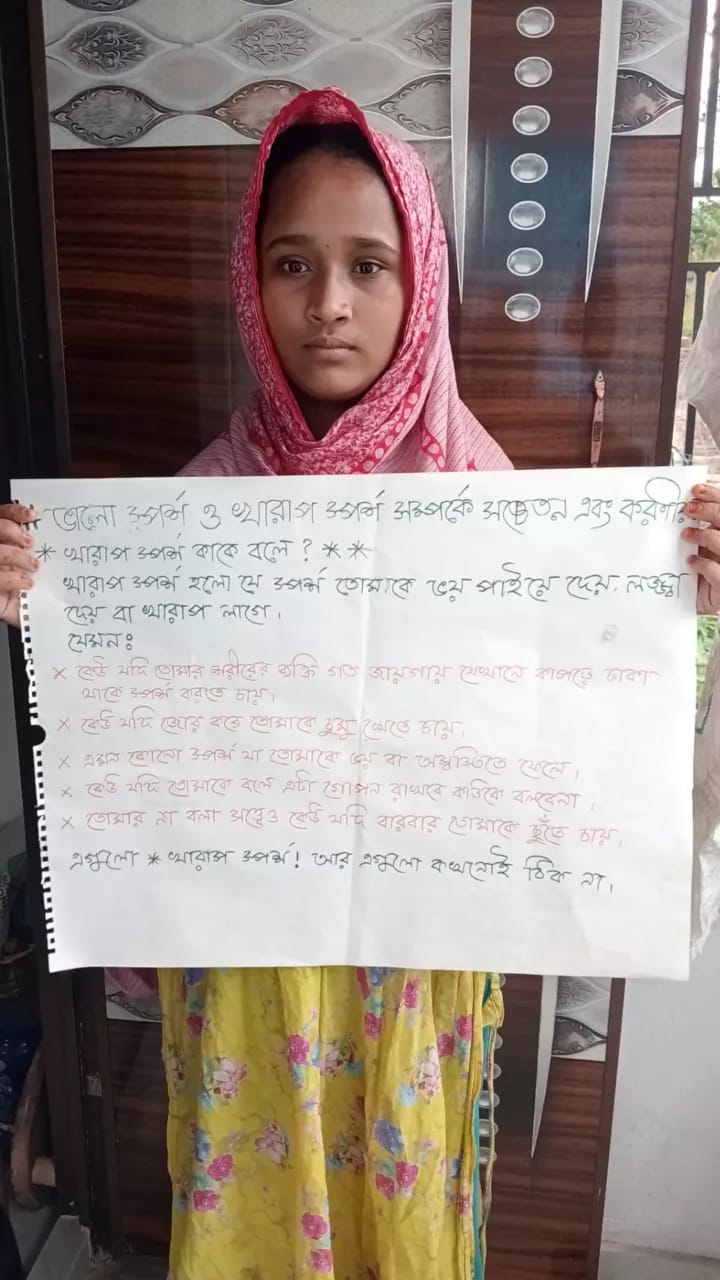 ভালো স্পর্শ ও খারাপ স্পর্শ সম্পর্কে সচেতন এবং করণীয়
* খারাপ স্পর্শ কাকে বলে ? * *
খারাপ স্পর্শ হলো যে স্পর্শ তোমাকে ভয় পাইয়ে দেয়, লজ্জা
দেয় বা খারাপ লাগে।
যেমনঃ
× কেউ যদি তোমার শরীরের ব্যক্তি গত জায়গায় যেখানে কাপড়ে ঢাকা
থাকে স্পর্শ করতে চায়,
× কেউ যদি জোর করে তোমাকে চুমু খেতে চায়,
× এমন কোনো স্পর্শ যা তোমাকে ভয় বা অস্বস্তিতে ফেলে,
× কেউ যদি তোমাকে বলে এটা গোপন রাখবে কাউকে বলবেনা,
× তোমার না বলা সত্ত্বেও কেউ যদি বারবার তোমাকে ছুঁতে চায়,
এগুলো * খারাপ স্পর্শ! আর এগুলো কখনোই ঠিক না।